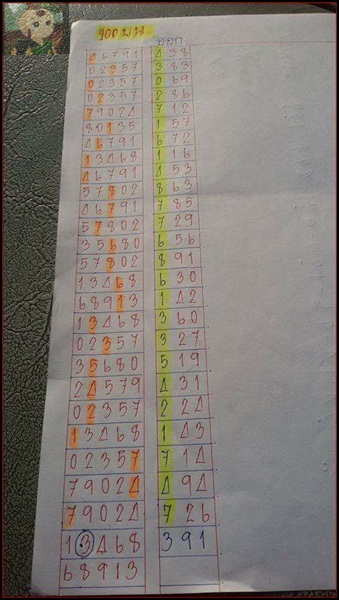 ออก
46791 438
02357 383
02357 069
02357 286
79024 712
80135 157
46791 672
13468 116
46791 453
57802 863
46791 785
57802 729
35680 656
57802 891
13468 630
68913 142
13468 360
02357 327
35680 519
24579 431
02357 224
13468 143
02357 714
79024 494
79024 726
13468 391
68913